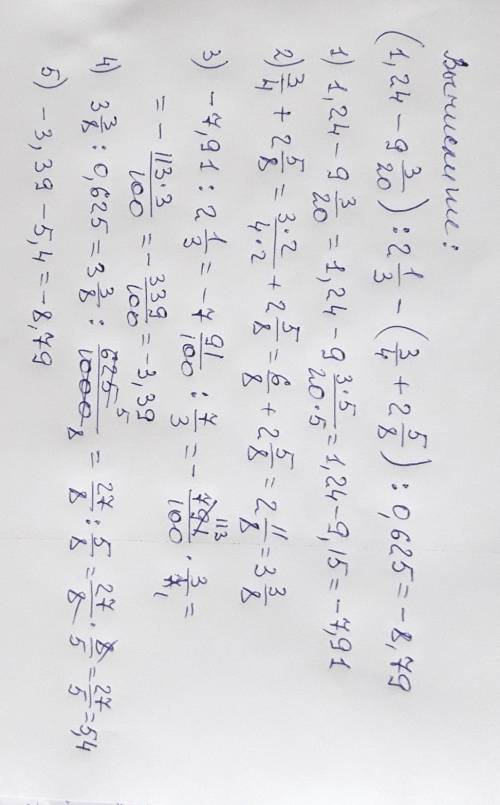 Вычислите:
(1,24 - 9 3/20) : 2 1/3 - (3/4 + 2 5/8) : 0,625 = -8,79
1) 1,24 - 9 3/20 = 1,24 - 9 3·5/20·5 = 1,24 - 9,15 = -7,91
2) 3/4 + 2 5/8 = 3·2/4·2 + 2 5/8 = 6/8 + 2 5/8 = 2 11/8 = 3 3/8
3) -7,91 : 2 1/3 = -7 91/100 : 7/3 = - 791 113/100 · 3/7 1 =
= - 113·3/100 = - 339/100 = -3,39
4) 3 3/8 : 0,625 = 3 3/8 : 625 5/1000 8 = 27/8 : 5/8 = 27/8 · 8/5 = 27/5 = 5,4
5) -3,39 - 5,4 = -8,79